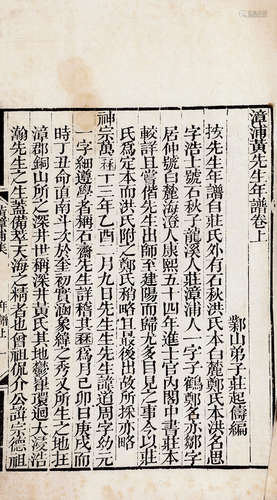 漳浦黃先生年譜卷上
鄴山弟子莊起儔編
按先生年譜自莊氏外有石秋洪氏本白麓鄭氏本洪名思
一字浩士號石秋子龍溪人莊漳浦人一字子鶴鄭名亦鄒字
居仲號白麓海澄人康熙五十四年進士官內閣中書莊本
較詳且嘗偕先生至建陽而歸尤多目見之事今以莊
氏為定本而洪氏附之鄭氏稍略且最後出故所採亦略
神宗萬曆十三年乙酉二月九日先生生先生諱道周字幼元
一字細遵學者稱石齋先生詳稽其曆為月己卯日庚戌而
時丁丑命直南斗次於奎初實涵象緯之秀又所生之地在
漳郡銅山所之深井世稱深井黃氏其地鬱嵂環迴大浸浩
瀚先生之生蓋備莘天海之精者也曾祖侃介公諱宗德祖
黃漳浦集
年譜上